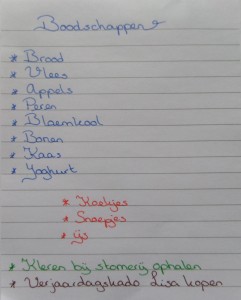 Boodschappen
* Brood
* Vlees
* Appels
* Peren
* Bloemkool
* Bonen
* Kaas
* Yoghurt
* Koekjes
* Snoepjes
* ijs
* Kleren bij stomerij ophalen
* Verjaardagskado Lisa kopen